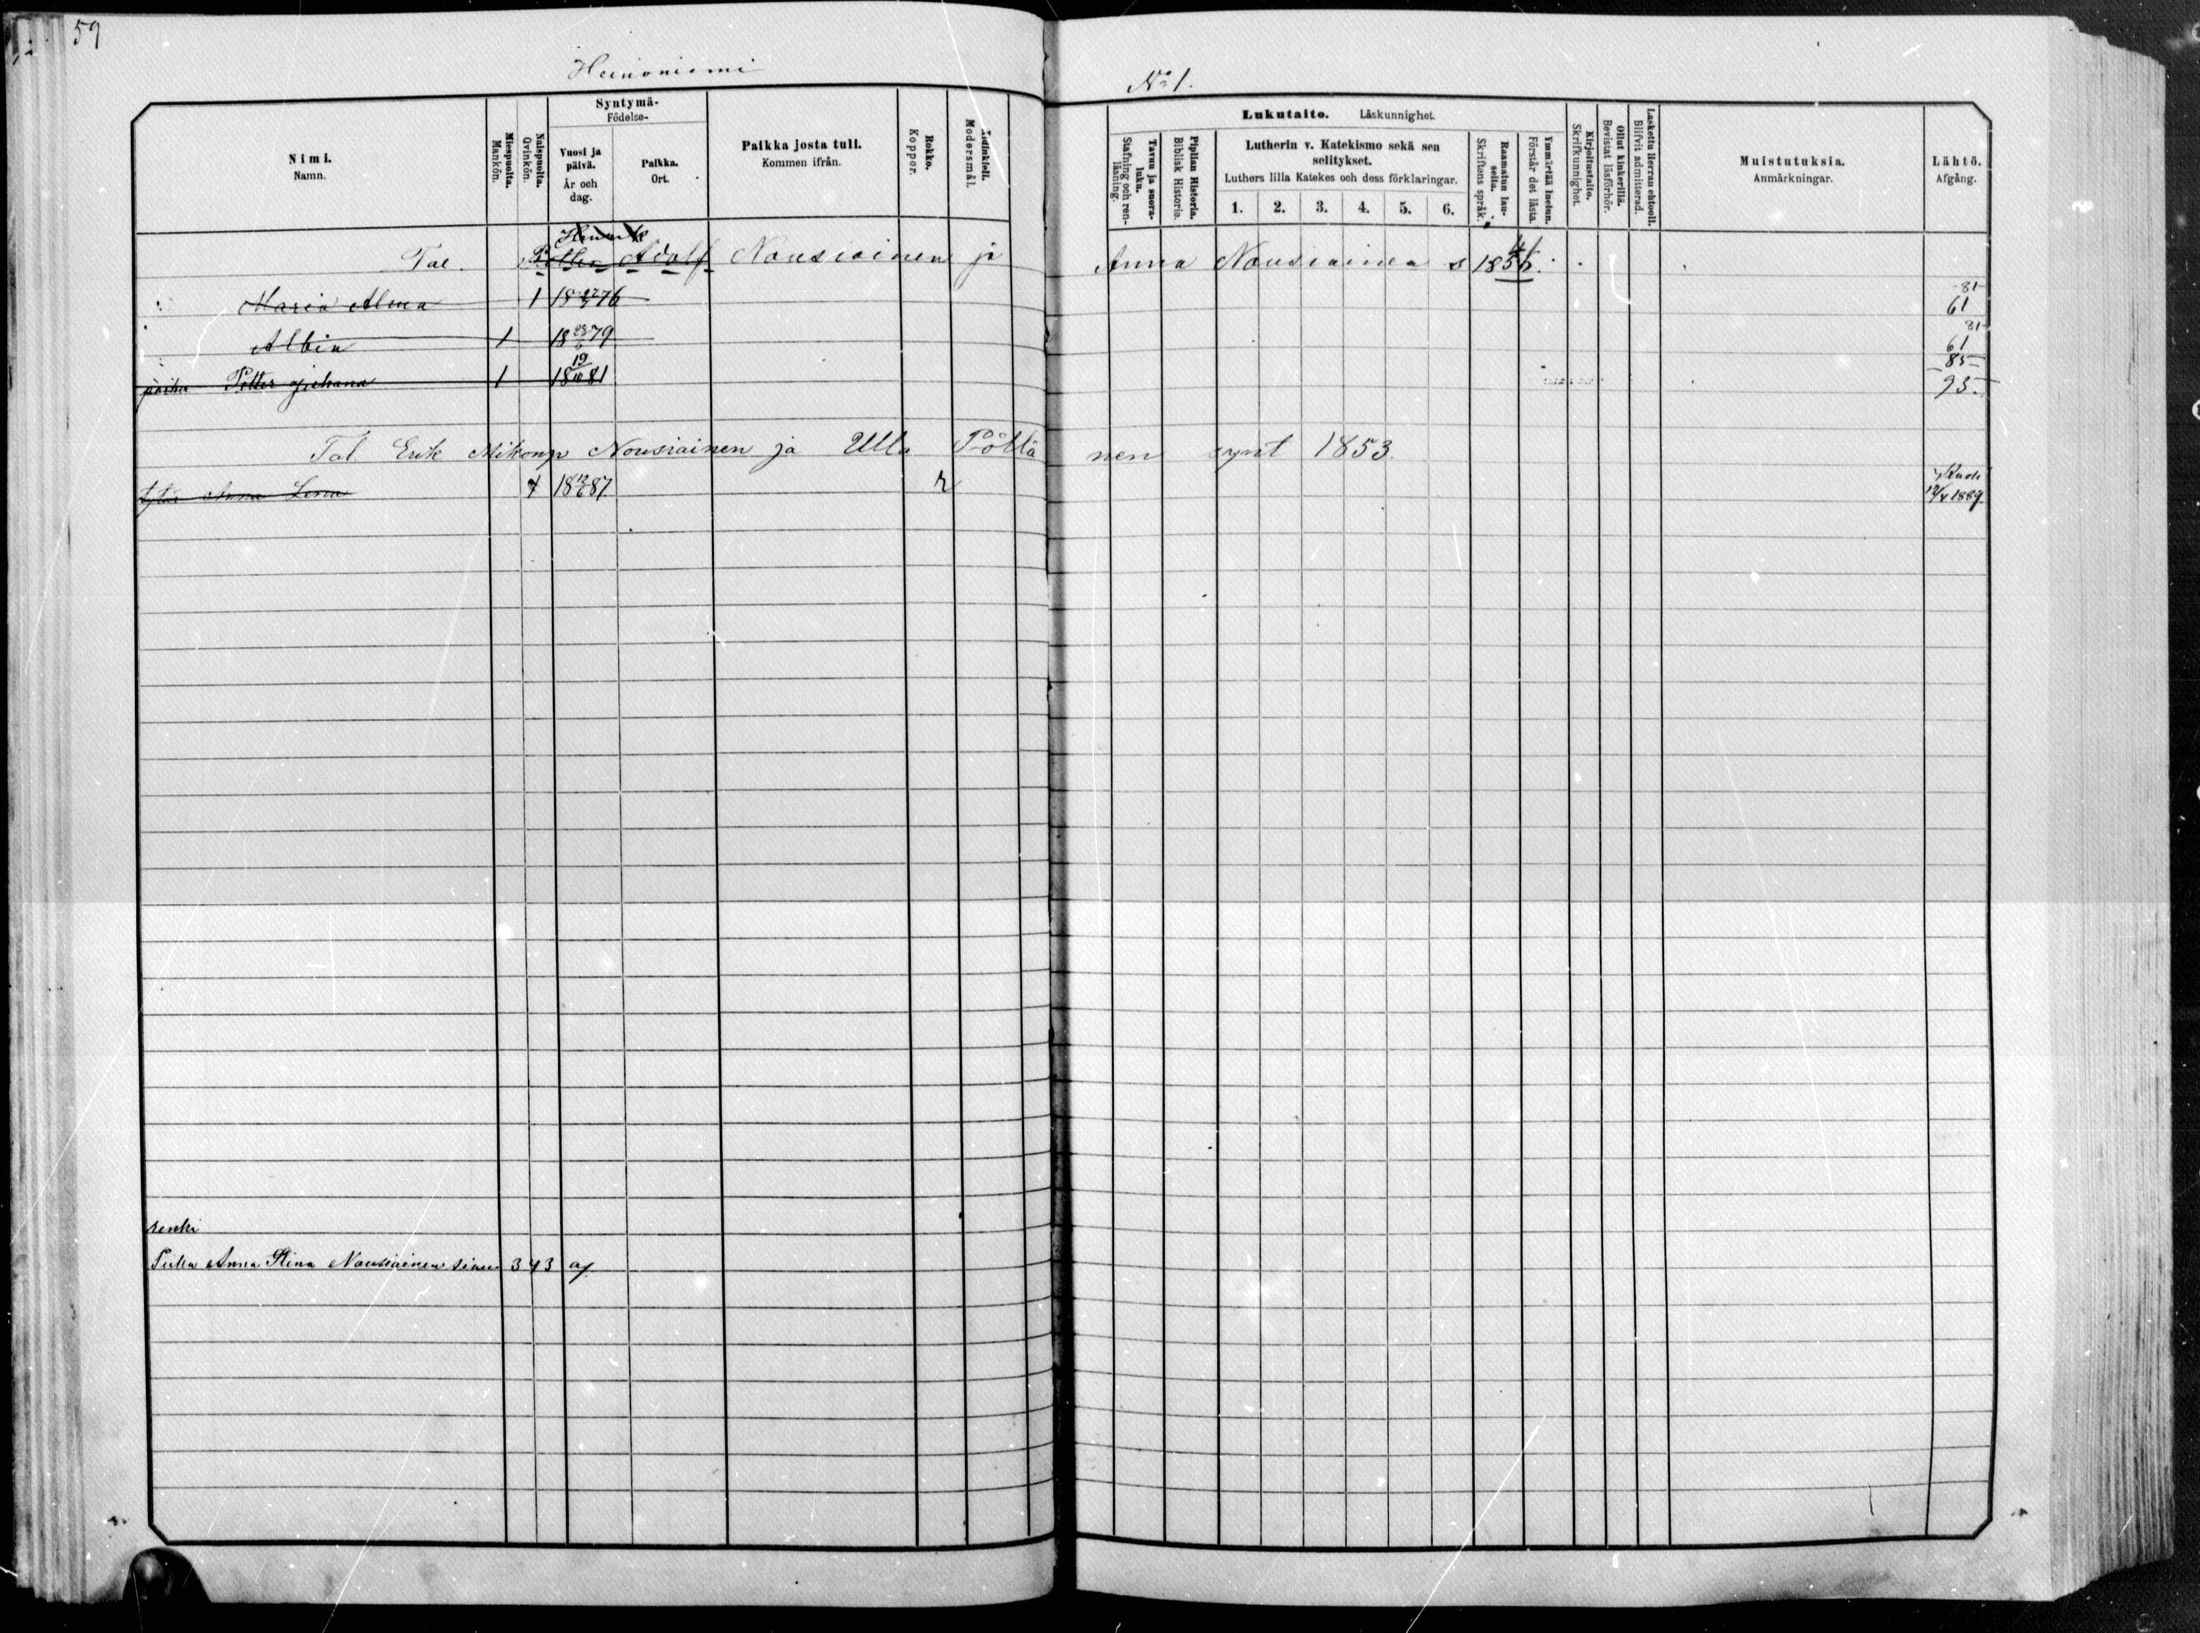 59
Heinoniemi
No 1.
Nimi.
Namn.
Miespuolta.
Mankön.
Naispuolta.
Qvinkön.
Syntymä-
Födelse-
Vuosi ja päivä.
År och dag.
Paikka.
Ort.
Paikka josta tuli.
Kommen ifrån.
Rokko.
Koppor.
Äidinkieli.
Modersmål.
Lukutaito. Läskunnighet.
Tavuu ja suora-luku.
Stafning och ren-läsning.
Piplian Historia.
Biblisk Historie.
Lutherin v. Katekismo sekä sen selitykset.
Luthers lilla Katekes och dess förklaringar.
1. 2. 3. 4. 5. 6.
Raamatun lau-seita.
Skriftens språk.
Ymmärtää luetun.
Förstår det lästa.
Kirjoitustaito.
Skrifkunnighet.
Ollut kinkerillä.
Bevistat läsförhör.
Laskettu Herran ehtooll.
Blifvit admitterad.
Muistutuksia.
Anmärkningar.
Lähtö.
Afgång.
Henrik
Tal. Petter Adolf Nousiainen ja Anna Nousiainen s 1856.
Maria Alma 1 18 27 76 81 61
Albin 1 18 79 81 61
poika Petter Juhana 1 18 19/10 81 85 93
Tal Erik Mikonp Nousiainen ja Ulla Pöllä nen synt 1853.
tytär Anna Lena 1 18 12/6 87 r Kuoli 12/4 1889
renki
Piika Anna Stina Nousiainen sivu 343